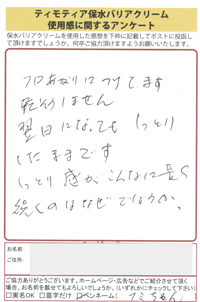 ティモティア保水バリアクリーム
使用感に関するアンケート
保水バリアクリームを使用した感想を下枠に記載してポストに投函し
て頂けますでしょうか。何卒ご協力頂けますようお願いいたします。
フロあがりにつけてます
乾そうしません
翌日になっても しっとり
したままです
しっとり感が、こんなに長く
続くのはなぜでしょうか、
お名前:
ご住所:
ご協力ありがとうございます。ホームページ・広告などでご紹介させて頂く
場合、お名前を載せてもよろしいでしょうか。(いずれかにチェックして下さい)
□実名OK □苗字だけ □ペンネーム( フミちゃん )